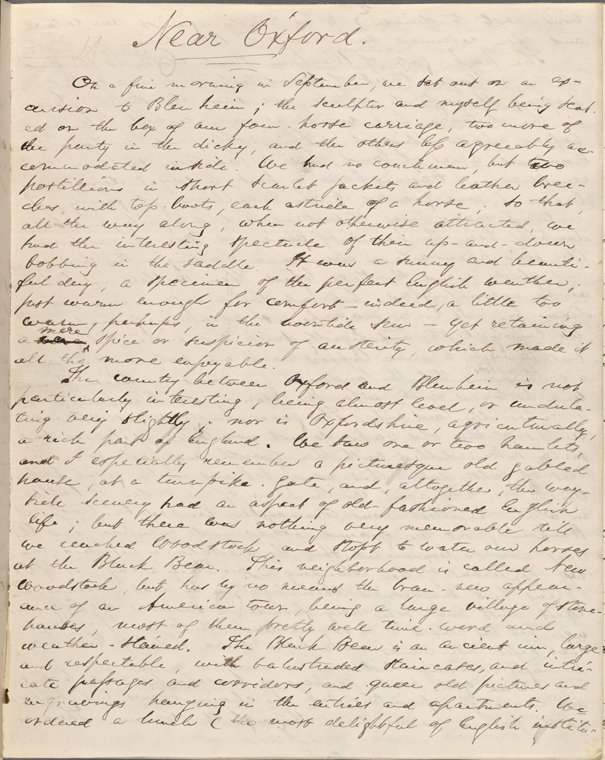 Near Oxford.
On a fine morning in September, we set out on an ex-
cursion to Blenheim; the sculptor and myself being seat-
ed on the box of our four-horse carriage, two more of
the party in the dicky, and the others less agreeably ac-
commodated inside. We had no coachman, but two
postillions in short scarlet jackets and leather bree-
ches with top-boots, each astride of a horse; so that,
all the way along, when not otherwise attracted, we
had the interesting spectacle of their up-and-down
bobbing in the saddle. It was a sunny and beauti-
ful day, a specimen of the perfect English weather,
just warm enough for comfort—indeed, a little too
warm, perhaps, in the noontide sun—yet retaining
a mere spice or suspicion of austerity, which made it
all the more enjoyable.
The country between Oxford and Blenheim is not
particularly interesting, being almost level, or undula-
ting very slightly; nor is Oxfordshire, agriculturally,
a rich part of England. We saw one or two hamlets,
and I especially remember a picturesque old gabled
house, at a turnpike-gate and, altogether, the way-
side scenery had an aspect of old-fashioned English
life; but there was nothing very memorable till
we reached Woodstock and stopt to water our horses
at the Black Bear. This neighborhood is called New
Woodstock, but has by no means the bran-new appear-
ance of an America town, being a large village of stone
houses, most of them pretty well time-worn and
weather-stained. The Black Bear is an ancient inn, large
and respectable, with balustraded staircases, and intri-
cate passages and corridors, and queer old pictures and
engravings hanging in the entries and apartments. We
ordered a lunch (the most delightful of English institu-